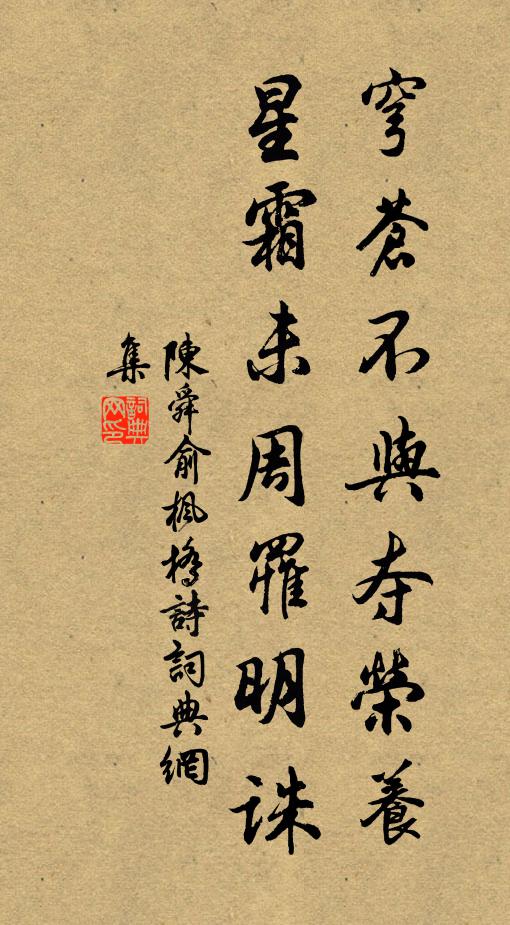 穹蒼不與夺榮養
星霜未周罹明誅
陳舜俞楓橋詩詞典網
集
詞典网印